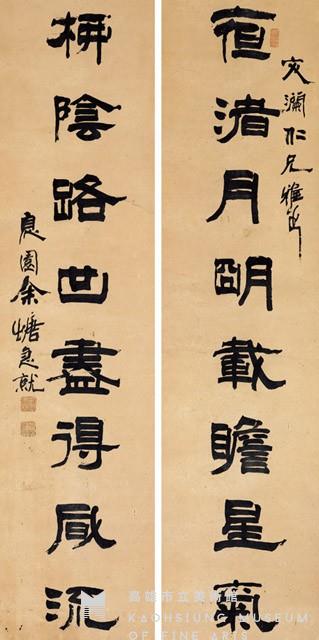 文瀾仁兄雅正
夜渚月朙載瞻星氣
桺陰路曲盡得風流
息園余塘急就
高雄市立美術館
KAOHSIUNG MUSEUM
OF FINE ARTS